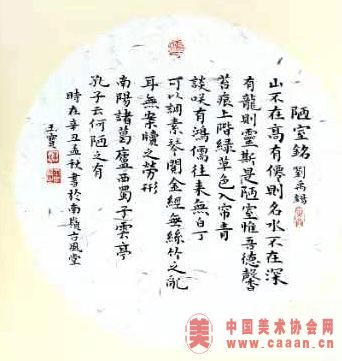 陋室銘
劉禹錫
山不在高有僊則名水不在深
有龍則靈斯是陋室惟吾德馨
苔痕上階綠草色入帘青
談咲有鴻儒往来無白丁
可以調素琴閱金經無絲竹之亂
耳無案牘之勞形
南陽諸葛廬西蜀子雲亭
孔子云何陋之有
時在辛丑孟秋書於南嶺古風堂
王寶
美
中国美术协会网
www.caaan.cn